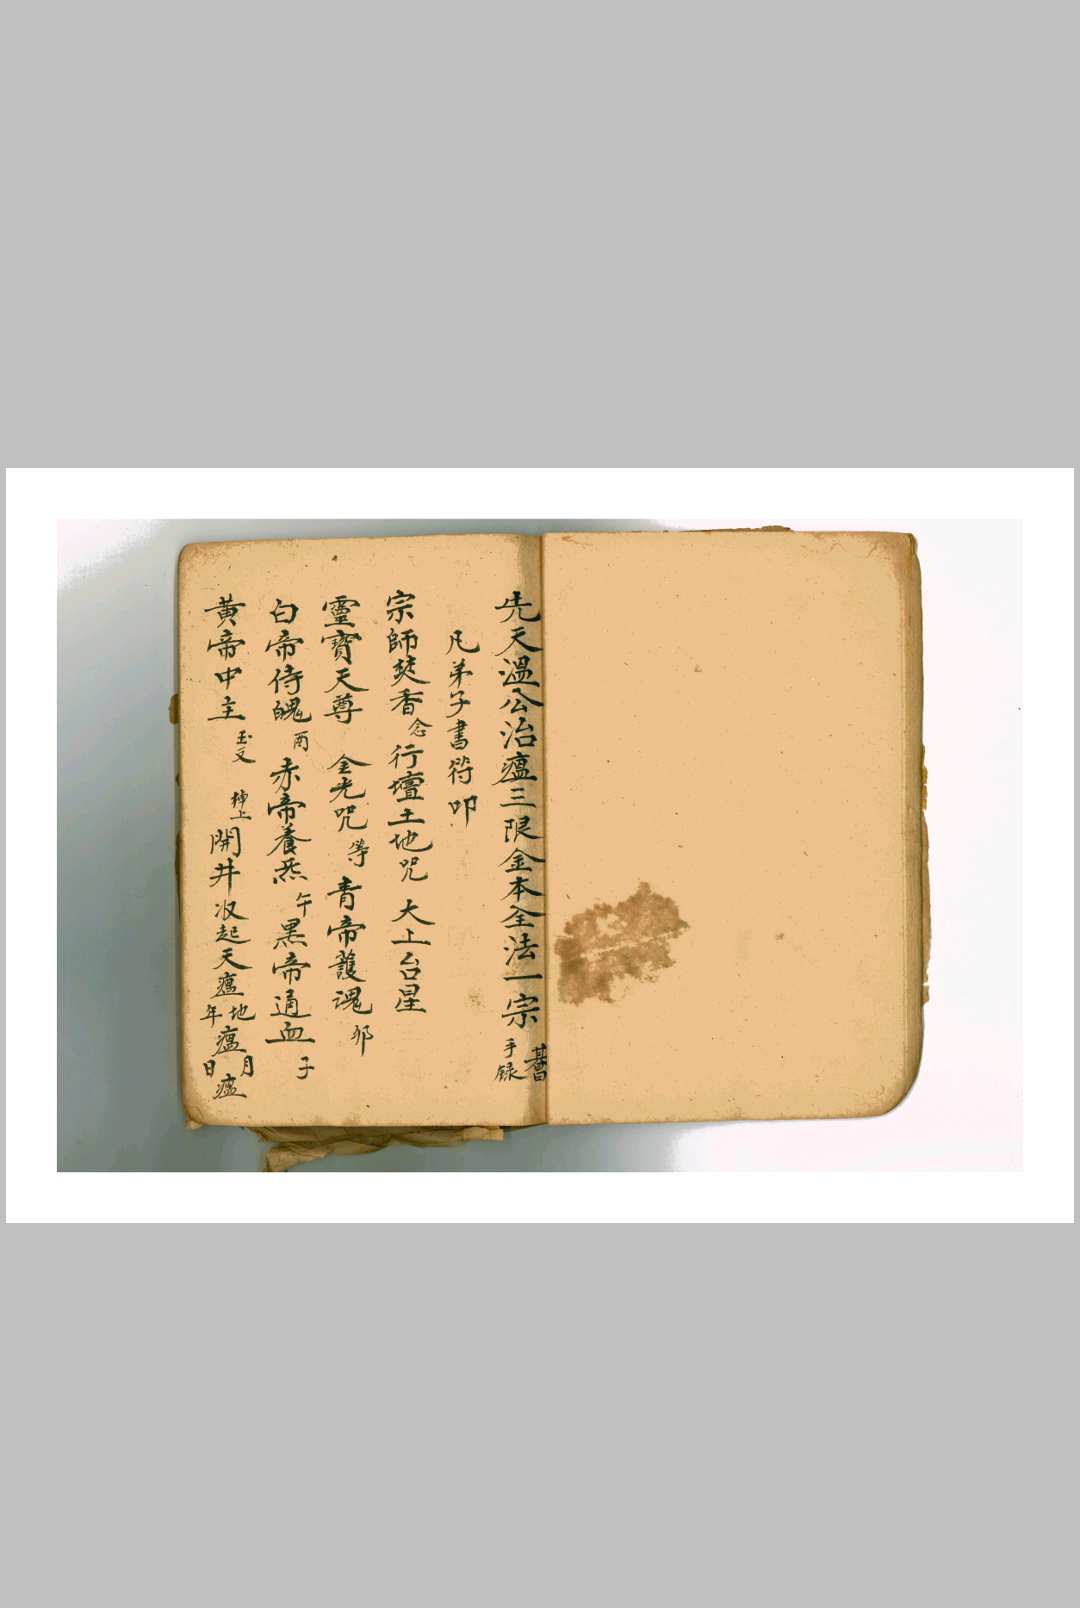 先天溫公治瘟三限金本全法一宗 手錄
凡弟子書符叩
宗師焚香念行壇土地咒 大上台星
靈寶天尊 金光咒等青帝護魂卯
白帝侍魄酉赤帝養炁午黑帝通血子
黃帝中主 開井收起天瘟地瘟年月瘟日